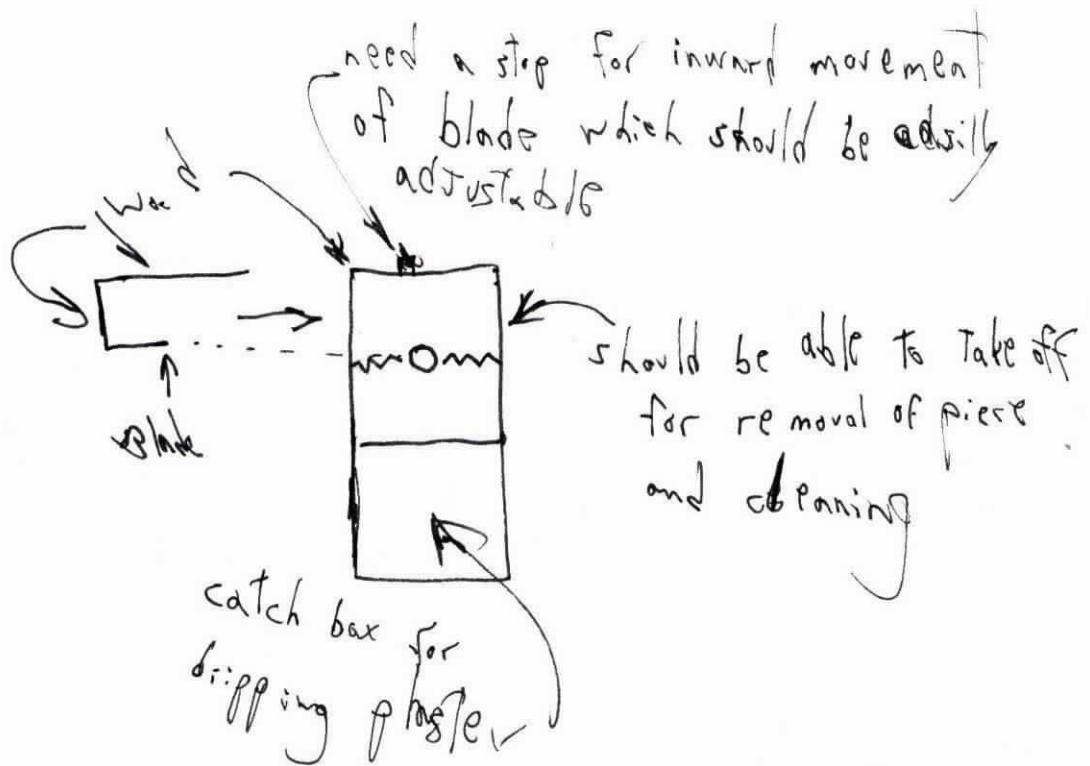 need a stop for inward movement
of blade which should be easily
adjustable
wood
Blade
should be able to take off
for removal of piece
and cleaning
catch box for
dripping plaster